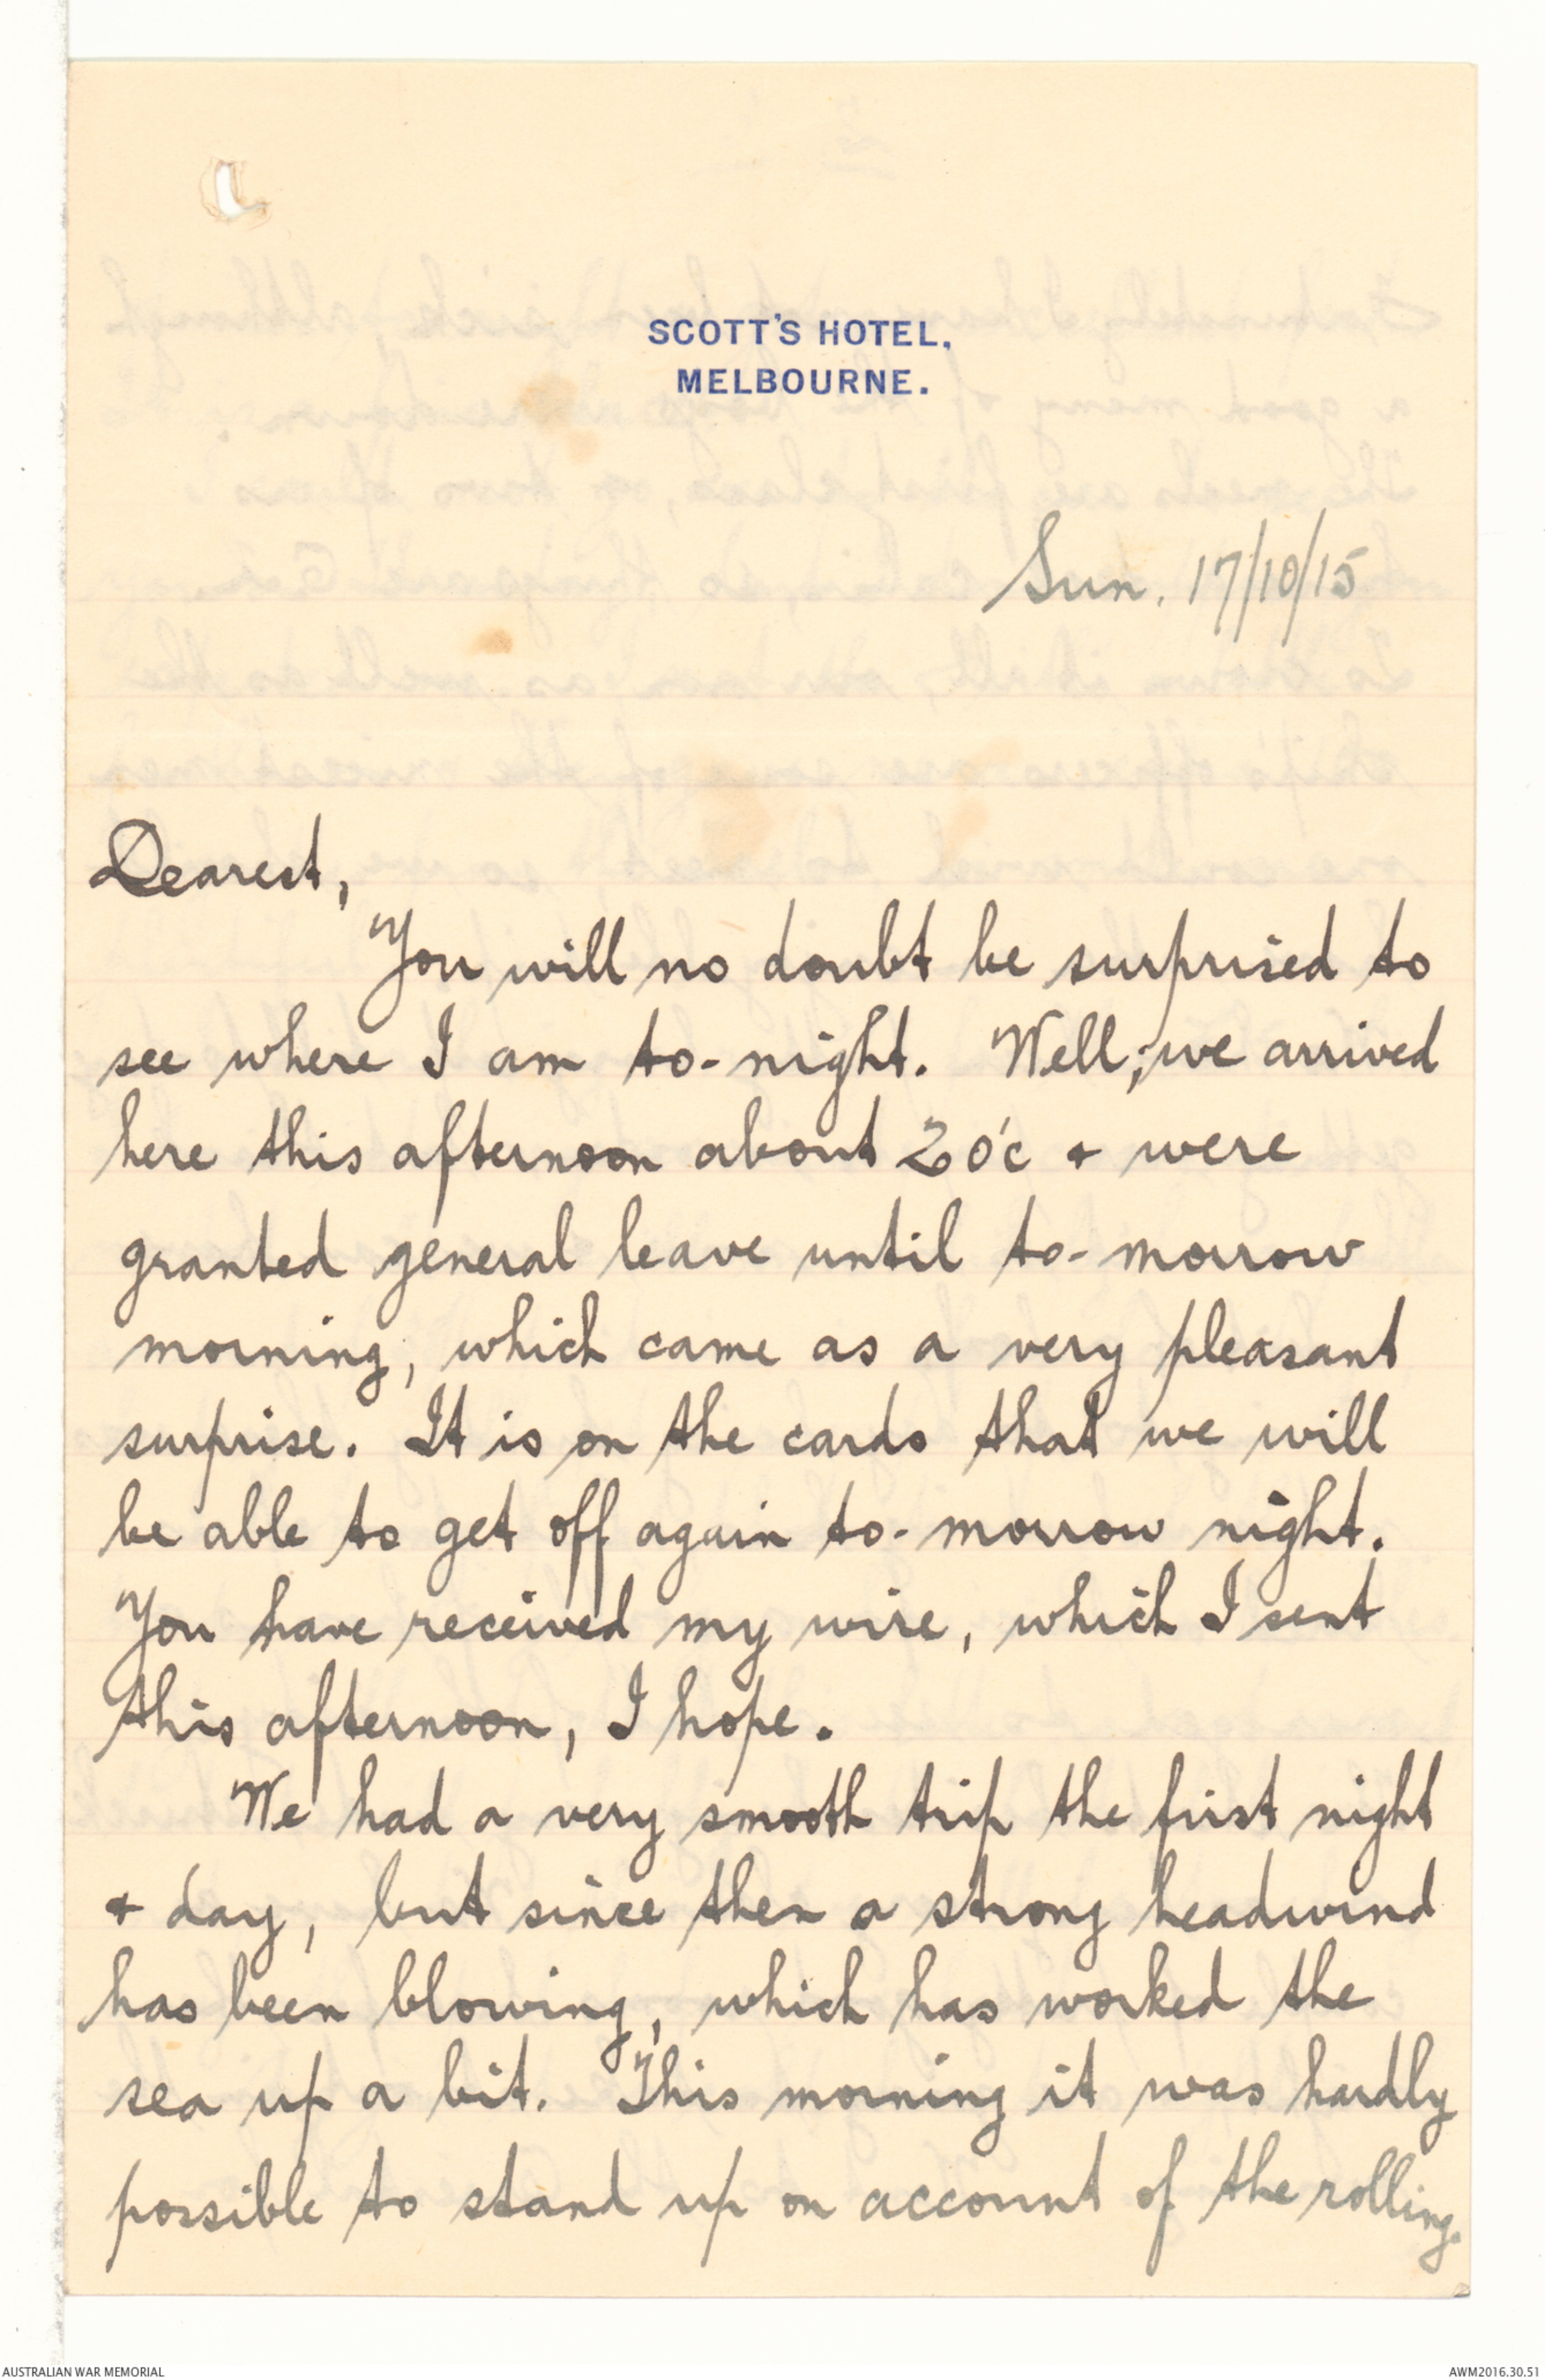 SCOTT'S HOTEL,
MELBOURNE.
Sun. 17/10/15
Dearest,
You will no doubt be surprised to
see where I am to-night. Well, we arrived
here this afternoon about 2 o'c & were
granted general leave until to-morrow
morning, which came as a very pleasant
surprise. It is on the cards that we will
be able to get off again to-morrow night.
You have received my wire, which I sent
this afternoon, I hope.
We had a very smooth trip the first night
& day, but since then a strong headwind
has been blowing, which has worked the
sea up a bit. This morning it was hardly
possible to stand up on account of the rolling.
AUSTRALIAN WAR MEMORIAL
AWM2016.30.51